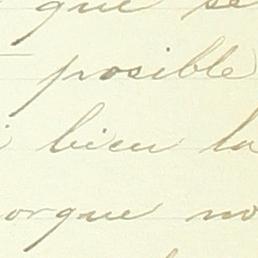 que se
posible
bien la
orque no